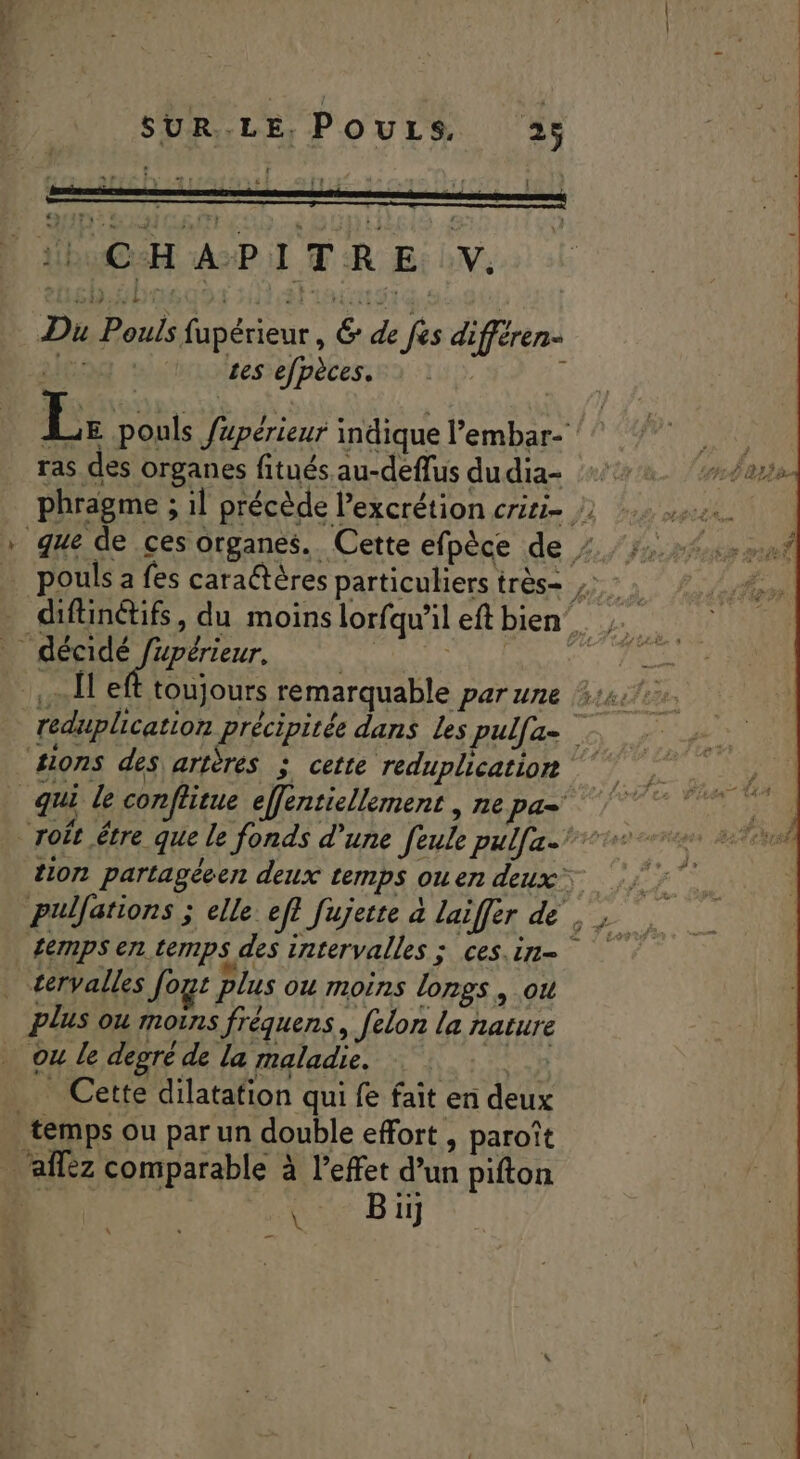 SUR LE POULS. 25
CHAPITRE V.
Du Pouls ſupérieur, & de ſes différen-
tes eſpèces.
LE pouls ſupérieur indique l'embar-
ras des organes ſitués au-deſſus du dia-
phragme ; il précède l'excrétion criti-
que de ces organes. Cette eſpèce de
pouls a ſes caractères particuliers très-
diſtinctifs, du moins lorſqu'il eſt bien
décidé ſupérieur.
Il eſt toujours remarquable par une
reduplication précipitée dans les pulſa-
tions des artères ; cette reduplication
qui le conſtitue eſſentiellement, ne pa-
roît être que le fonds d'une ſeule pulſa-
tion partagée en deux temps ou en deux
pulſations ; elle eſt ſujette à laiſſer de
temps en temps des intervalles ; ces in-
tervalles ſont plus ou moins longs, ou
plus ou moins fréquens, ſelon la nature
ou le degré de la maladie.
Cette dilatation qui ſe fait en deux
temps ou par un double effort, paroît
aſſez comparable à l'effet d'un piſton
B iij